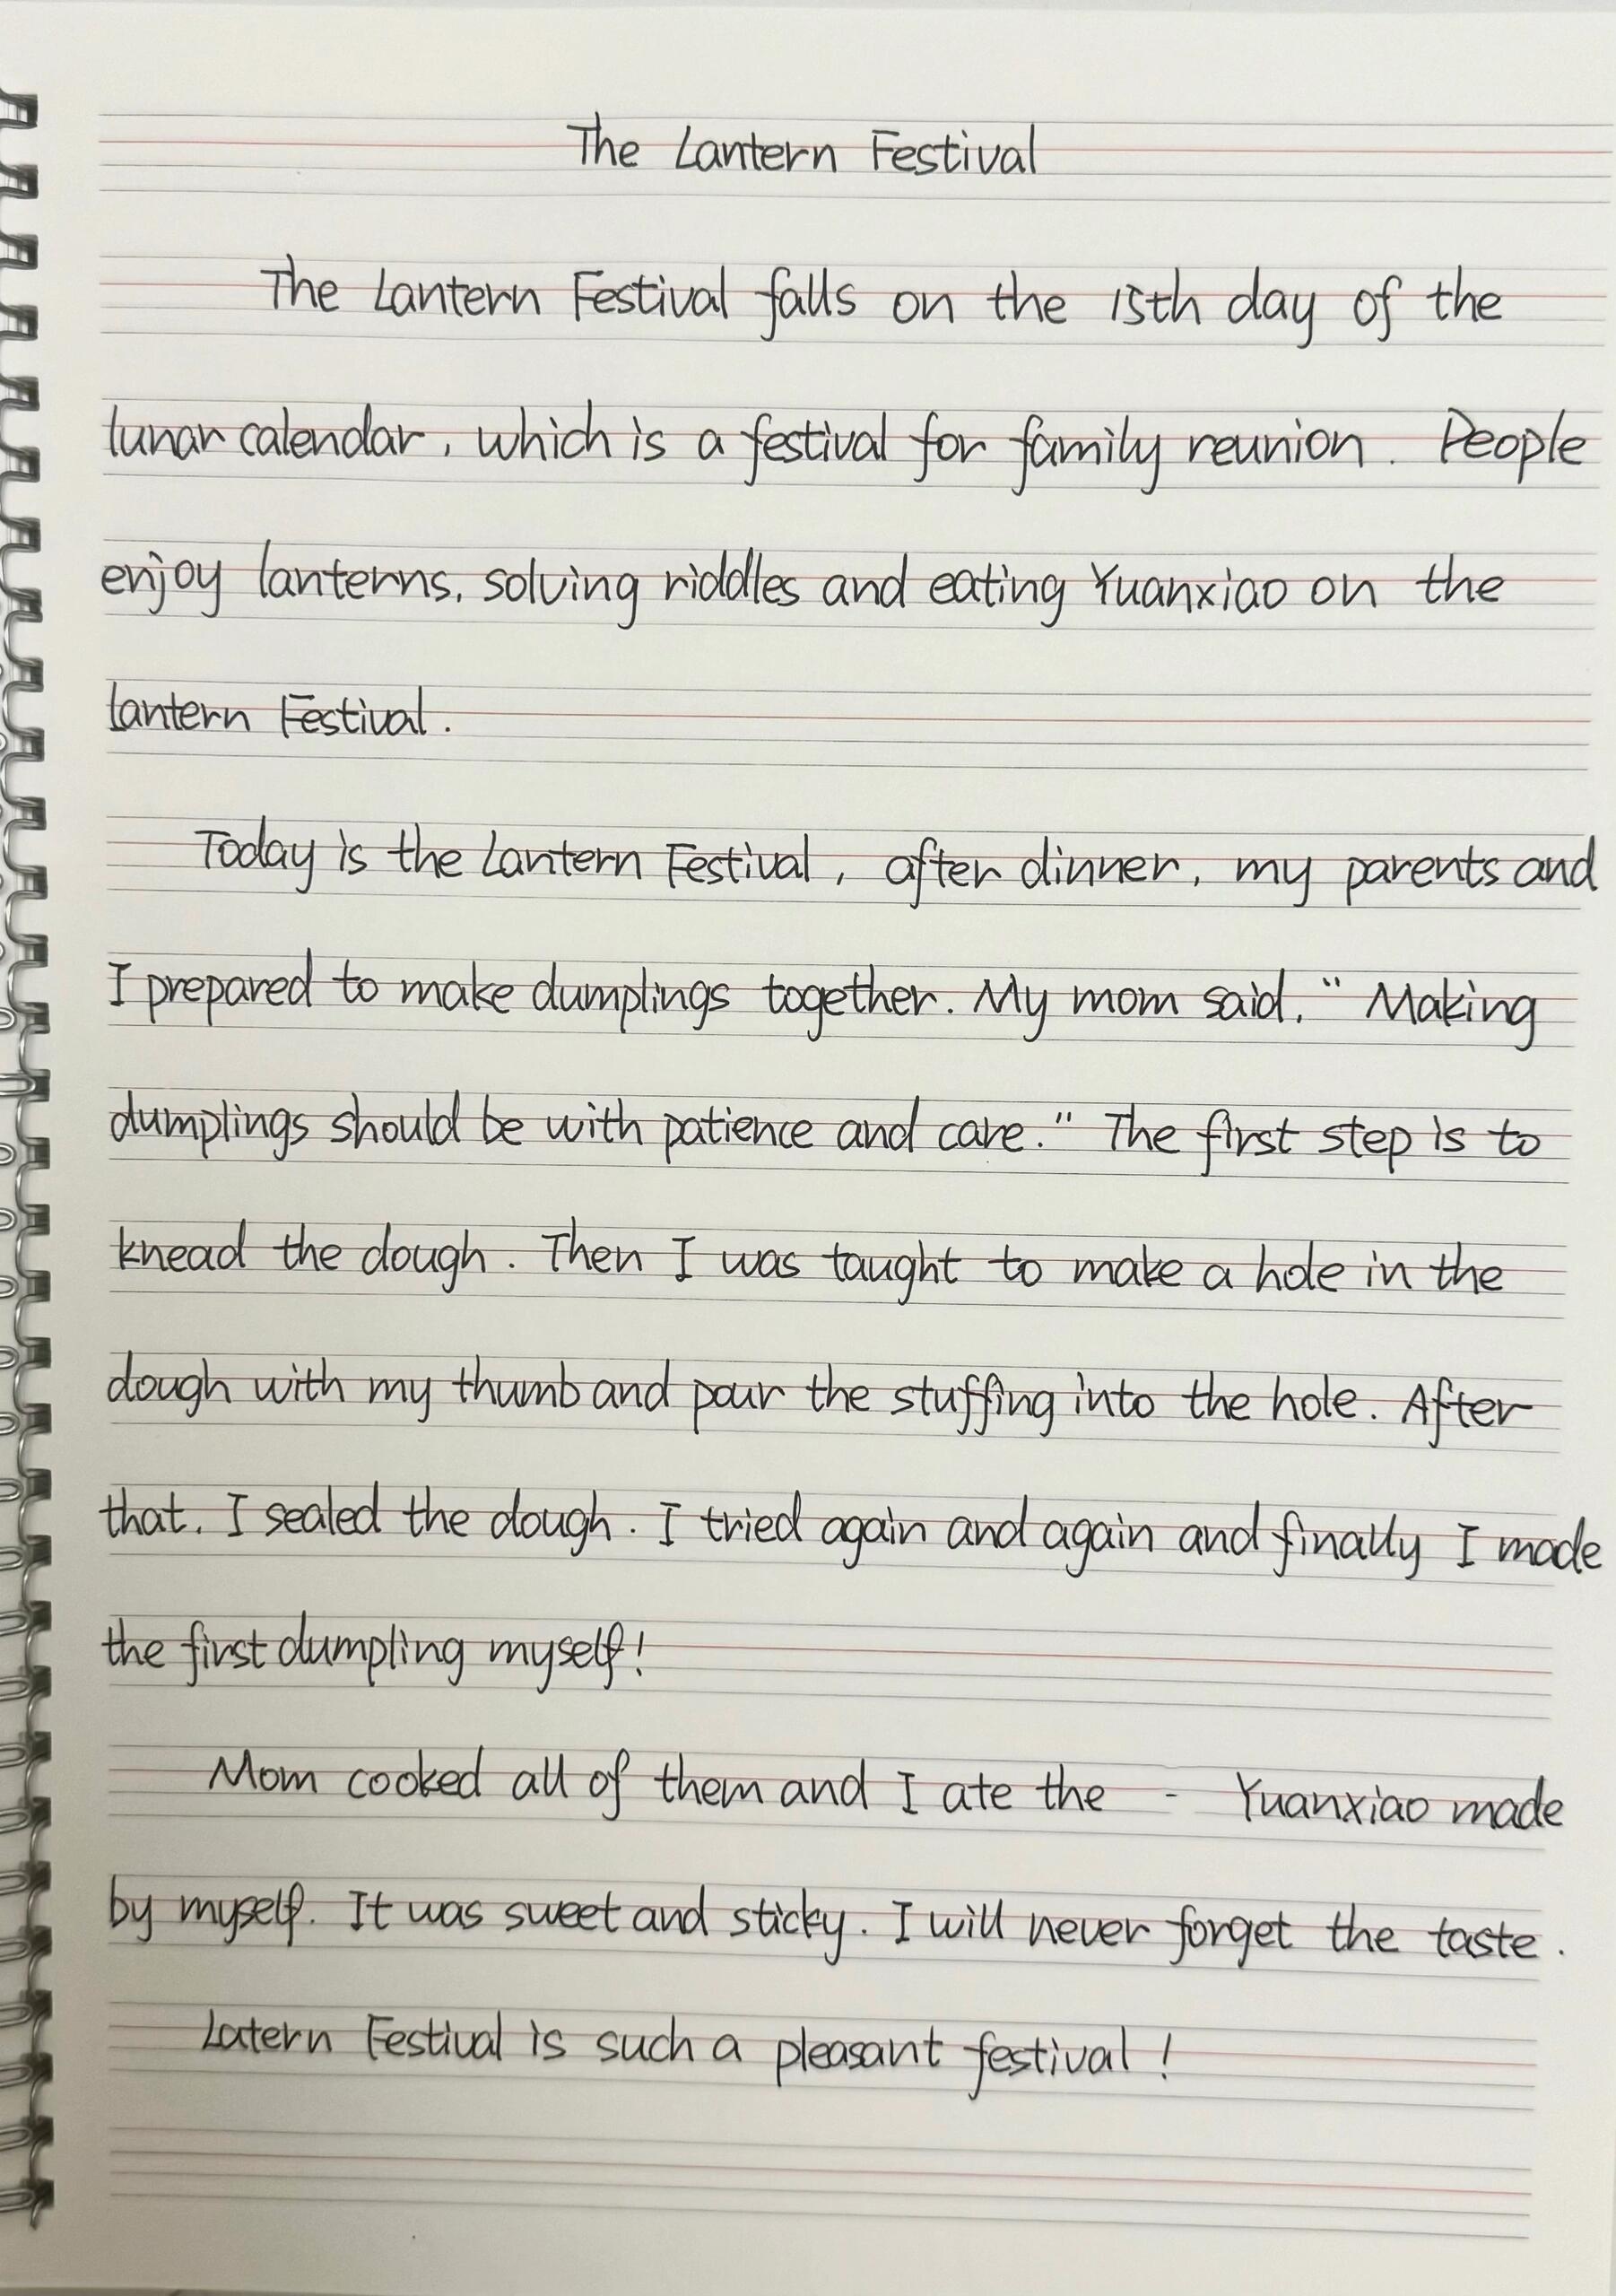 The Lantern Festival
The Lantern Festival falls on the 15th day of the
lunar calendar, which is a festival for family reunion. People
enjoy lanterns, solving riddles and eating Yuanxiao on the
lantern Festival.
Today is the Lantern Festival, after dinner, my parents and
I prepared to make dumplings together. My mom said, " Making
dumplings should be with patience and care." The first step is to
knead the dough. Then I was taught to make a hole in the
dough with my thumb and pour the stuffing into the hole. After
that, I sealed the dough. I tried again and again and finally I made
the first dumpling myself!
Mom cooked all of them and I ate the - Yuanxiao made
by myself. It was sweet and sticky. I will never forget the taste.
Latern Festival is such a pleasant festival!